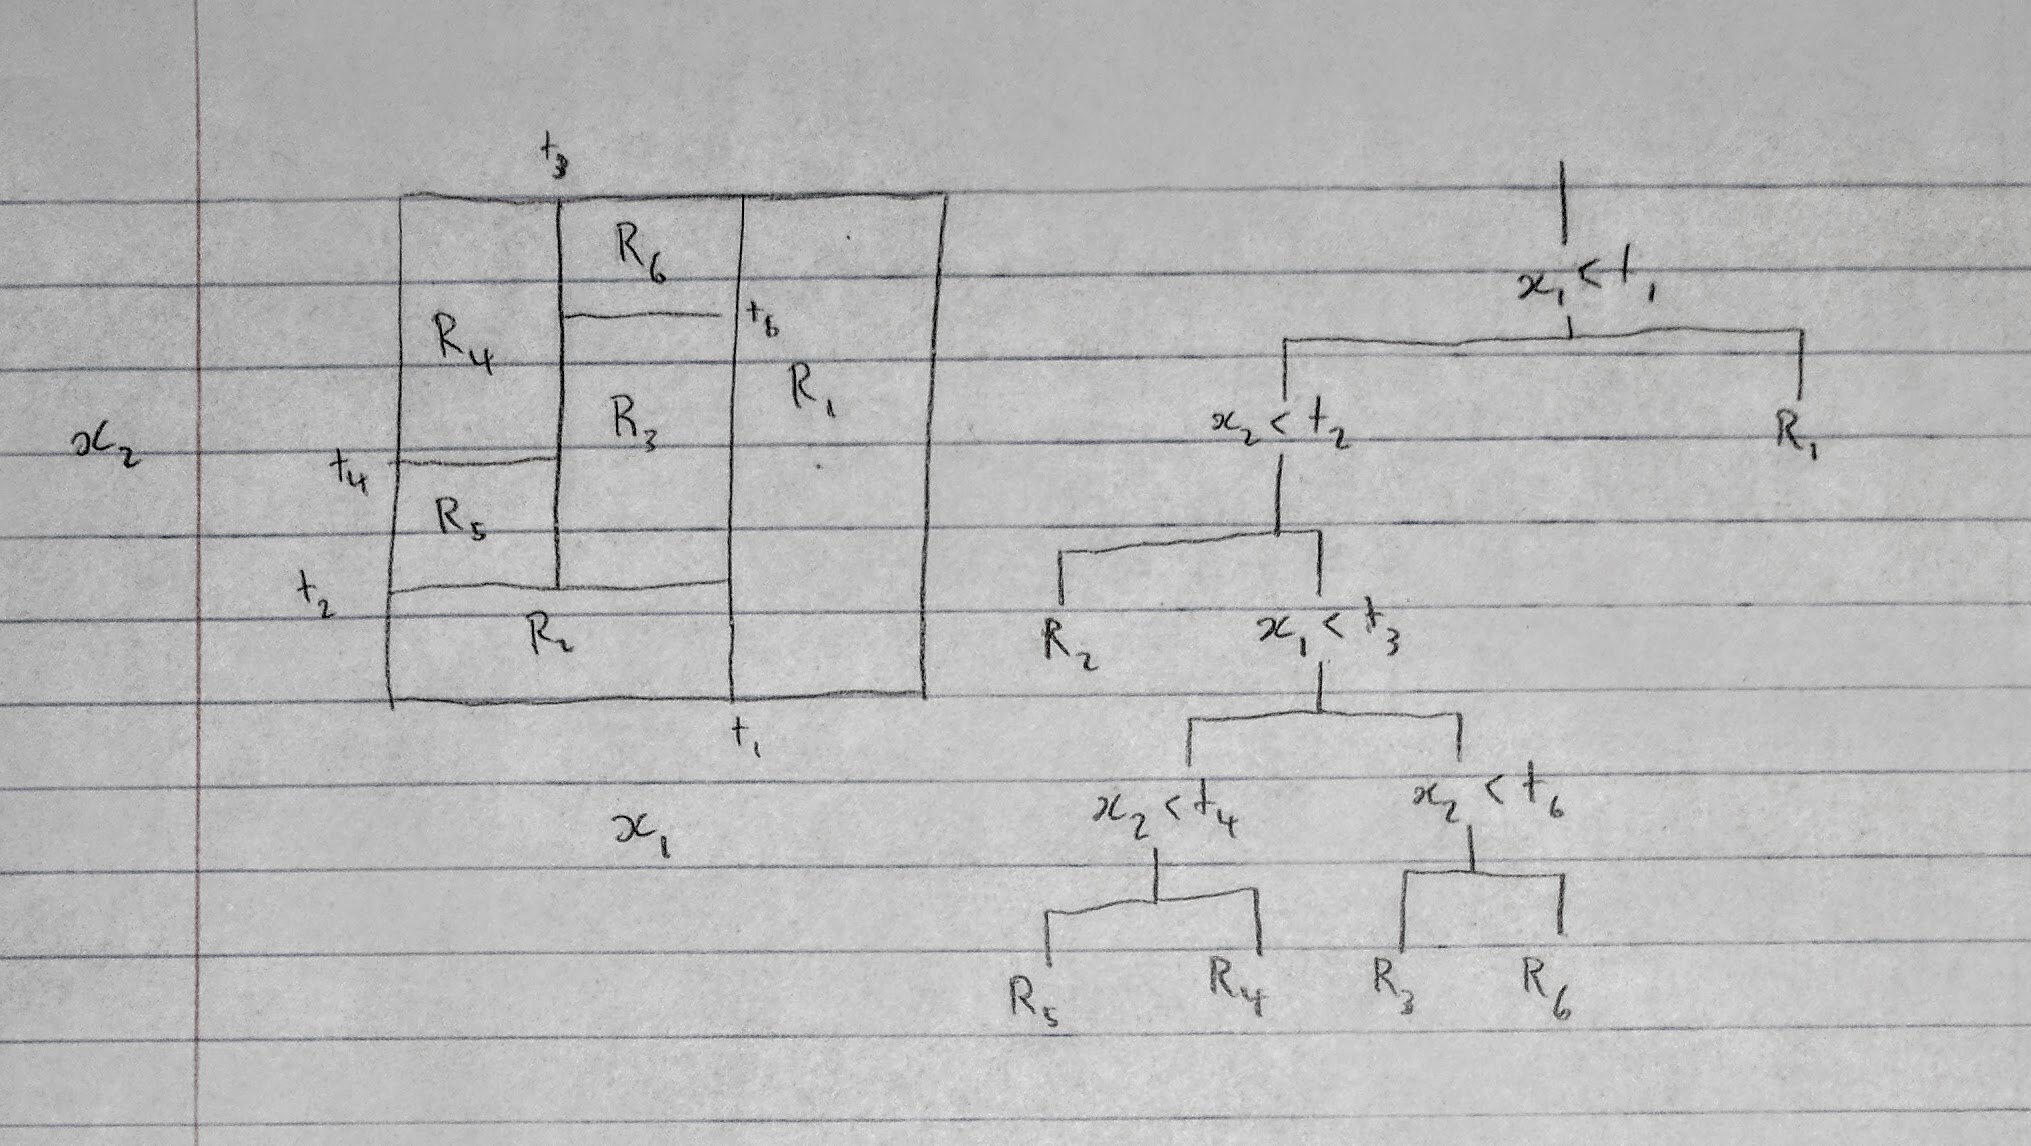 t₃
R₆
t₆
R₄
R₁
R₃
x₂
t₄
R₅
t₂
R₂
t₁
x₁
x₁ < t₁
x₂ < t₂
R₁
R₂
x₁ < t₃
x₂ < t₄
x₂ < t₆
R₅
R₄
R₃
R₆